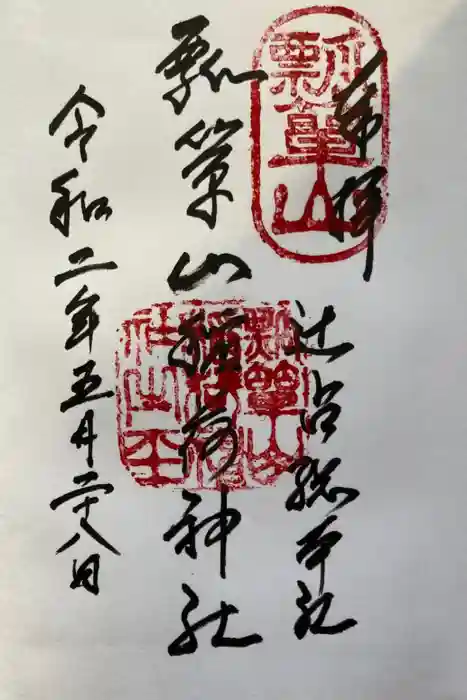 奉拝
辻占総本社
瓢箪山稲荷神社
令和二年五月二十八日
瓢箪山